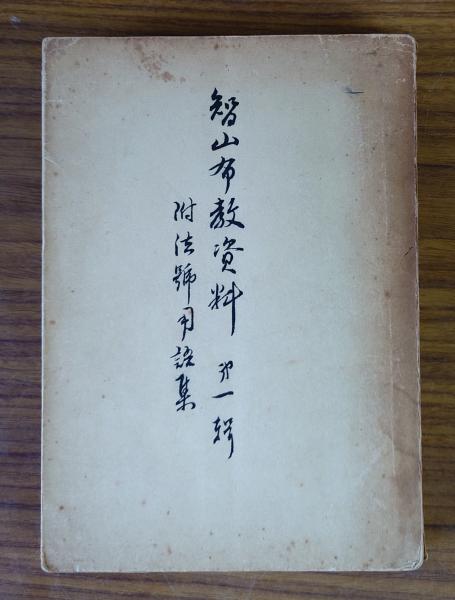 智山布教資料 第一輯
附法號用語集